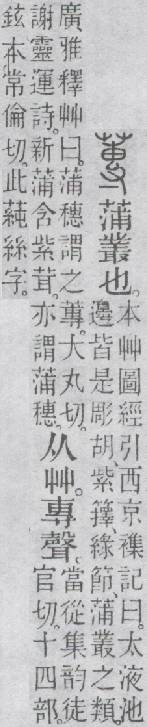 蓴 蒲叢也。
本艸圖經引西京襍記曰。太液池
邊皆是彫胡、紫籜、綠節、蒲叢之類。
廣雅釋艸曰。蒲穗謂之蓴。大丸切。
謝靈運詩。新蒲含紫茸。亦謂蒲穗。
从艸。專聲。
當從集韵徒
官切。十四部。
鉉本常倫切。此蒓絲字。